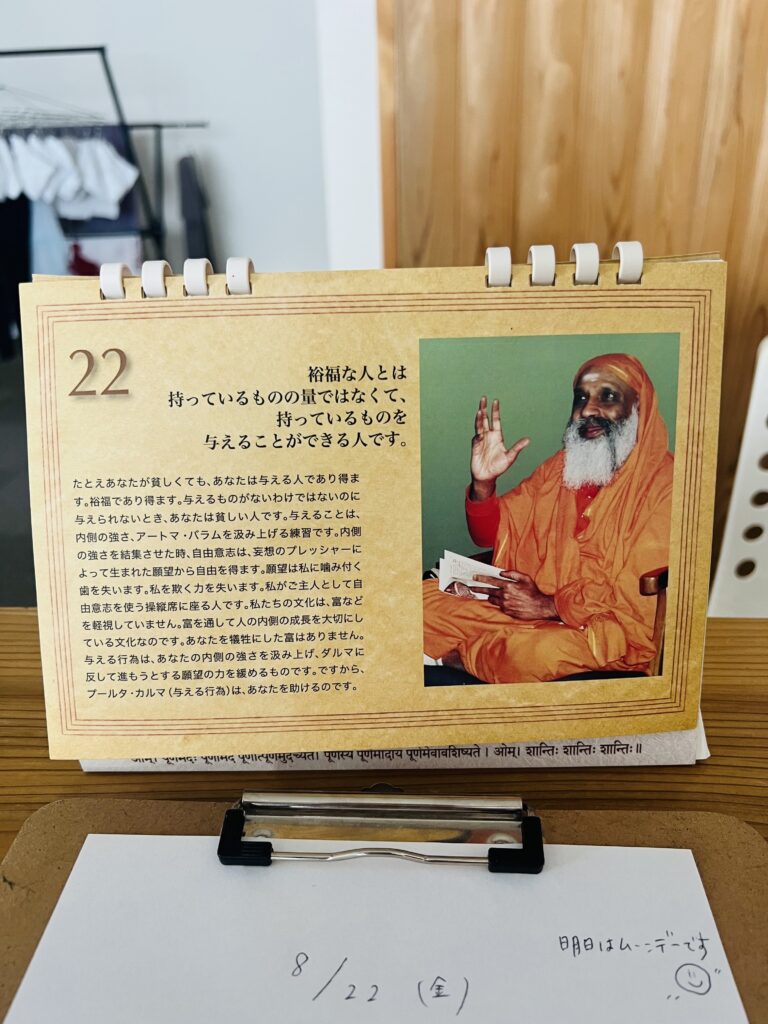 22
裕福な人とは
持っているものの量ではなくて、
持っているものを
与えることができる人です。
たとえあなたが貧しくても、あなたは与える人であり得ま
す。裕福であり得ます。与えるものがないわけではないのに
与えられないとき、あなたは貧しい人です。与えることは、
内側の強さ、アートマ・バラムを汲み上げる練習です。内側
の強さを結集させた時、自由意志は、妄想のプレッシャーに
よって生まれた願望から自由を得ます。願望は私に噛み付く
歯を失います。私を欺く力を失います。私がご主人として自
由意志を使う操縦席に座る人です。私たちの文化は、富など
を軽視していません。富を通して人の内側の成長を大切にし
ている文化なのです。あなたを犠牲にした富はありません。
与える行為は、あなたの内側の強さを汲み上げ、ダルマに
反して進もうとする願望の力を緩めるものです。ですから、
プールタ・カルマ（与える行為）は、あなたを助けるのです。
ओम्। पूर्णमदः पूर्णमिदं पूर्णात्पूर्णमुदच्यते। पूर्णस्य पूर्णमादाय पूर्णमेवावशिष्यते। ओम्। शान्तिः शान्तिः शान्तिः॥
明日はムーンデーです
8/22 (金)